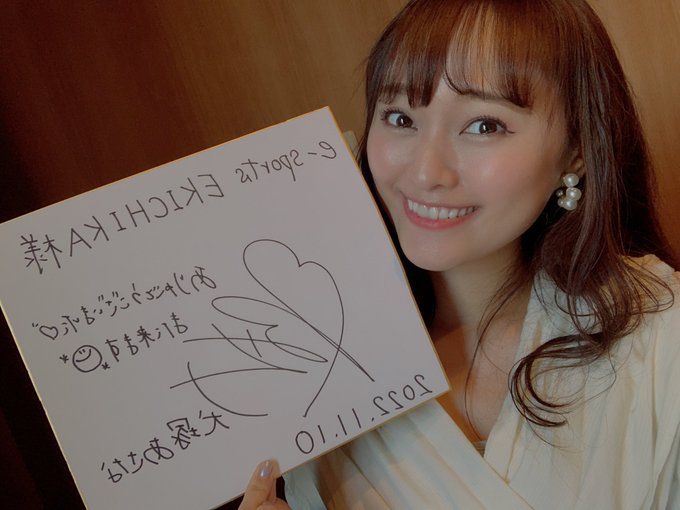 e-sports EKICHIKA様
ありがとうございます♡
また来ます
2022.11.10
大塚あさな